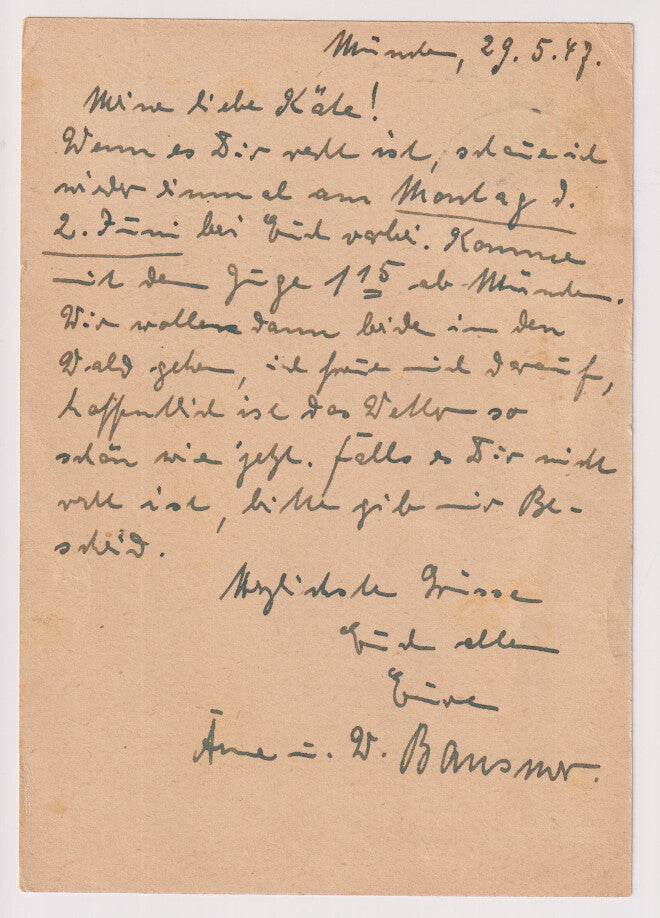 Münden, 29.5.47.
Meine liebe Käte!
Wenn es Dir recht ist, schaue ich
wieder einmal am Montag d.
2. Juni bei Euch vorbei. Komme
mit dem Zuge 1 15 ab Münden.
Wir wollen dann beide in den
Wald gehen, ich freue mich darauf,
hoffentlich ist das Wetter so
schön wie jetzt. Falls es Dir nicht
recht ist, bitte gib mir Be-
scheid.
Herzlichste Grüsse
Euch allen
Eure
Änne u. W. Bausmer.